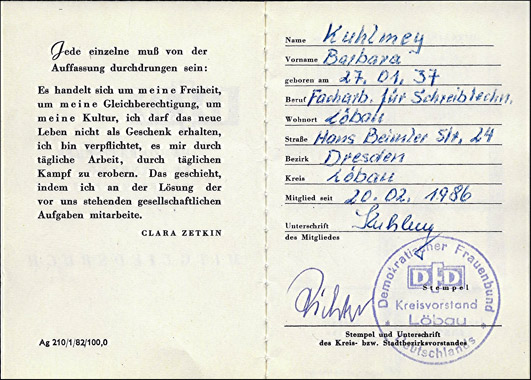 Jede einzelne muß von der
Auffassung durchdrungen sein:
Es handelt sich um meine Freiheit,
um meine Gleichberechtigung, um
meine Kultur, ich darf das neue
Leben nicht als Geschenk erhalten,
ich bin verpflichtet, es mir durch
tägliche Arbeit, durch täglichen
Kampf zu erobern. Das geschieht,
indem ich an der Lösung der
vor uns stehenden gesellschaftlichen
Aufgaben mitarbeite.
CLARA ZETKIN
Ag 210/1/82/100,0
Name Kuhlmey
Vorname Barbara
geboren am 27.01.37
Beruf Facharb. für Schreibtechn.
Wohnort Löbau
Straße Hans Beimler Str. 24
Bezirk Dresden
Kreis Löbau
Mitglied seit 20.02.1986
Unterschrift Kuhlmey
des Mitgliedes
Demokratischer Frauenbund
DFD
Stempel
Kreisvorstand
Löbau
Deutschlands
Richter
Stempel und Unterschrift
des Kreis- bzw. Stadtbezirksvorstandes